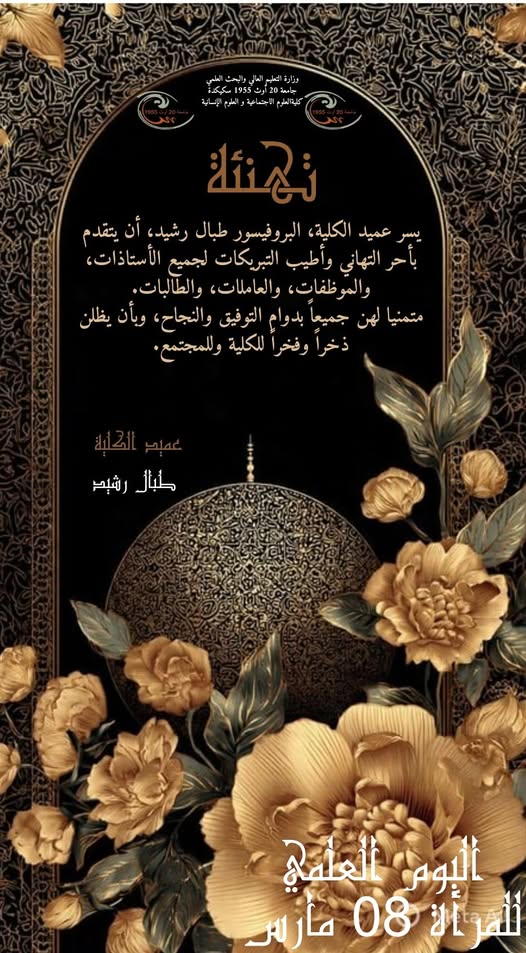 وزارة التعليم العالي والبحث العلمي
جامعة 20 أوت 1955 سكيكدة
كليةالعلوم الاجتماعية و العلوم الإنسانية
جامعة 20 أوت 1955
جامعة 20 أوت 1955
تهنئة
يسر عميد الكلية، البروفيسور طبال رشيد، أن يتقدم
بأحر التهاني وأطيب التبريكات لجميع الأستاذات،
والموظفات، والعاملات، والطالبات.
متمنيا لهن جميعاً بدوام التوفيق والنجاح، وبأن يظلن
ذخراً وفخراً للكلية وللمجتمع.
عميد الكلية
طبال رشيد
اليوم العلمي
للمرأة 08 مارس
Meta AI